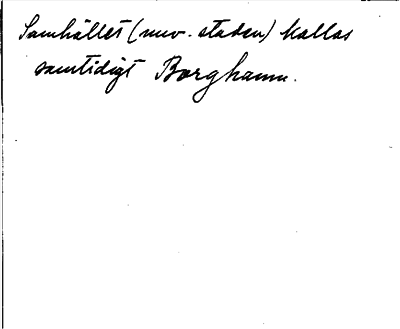 Samhället (nuv. staden) kallas
samtidigt Borghamn.